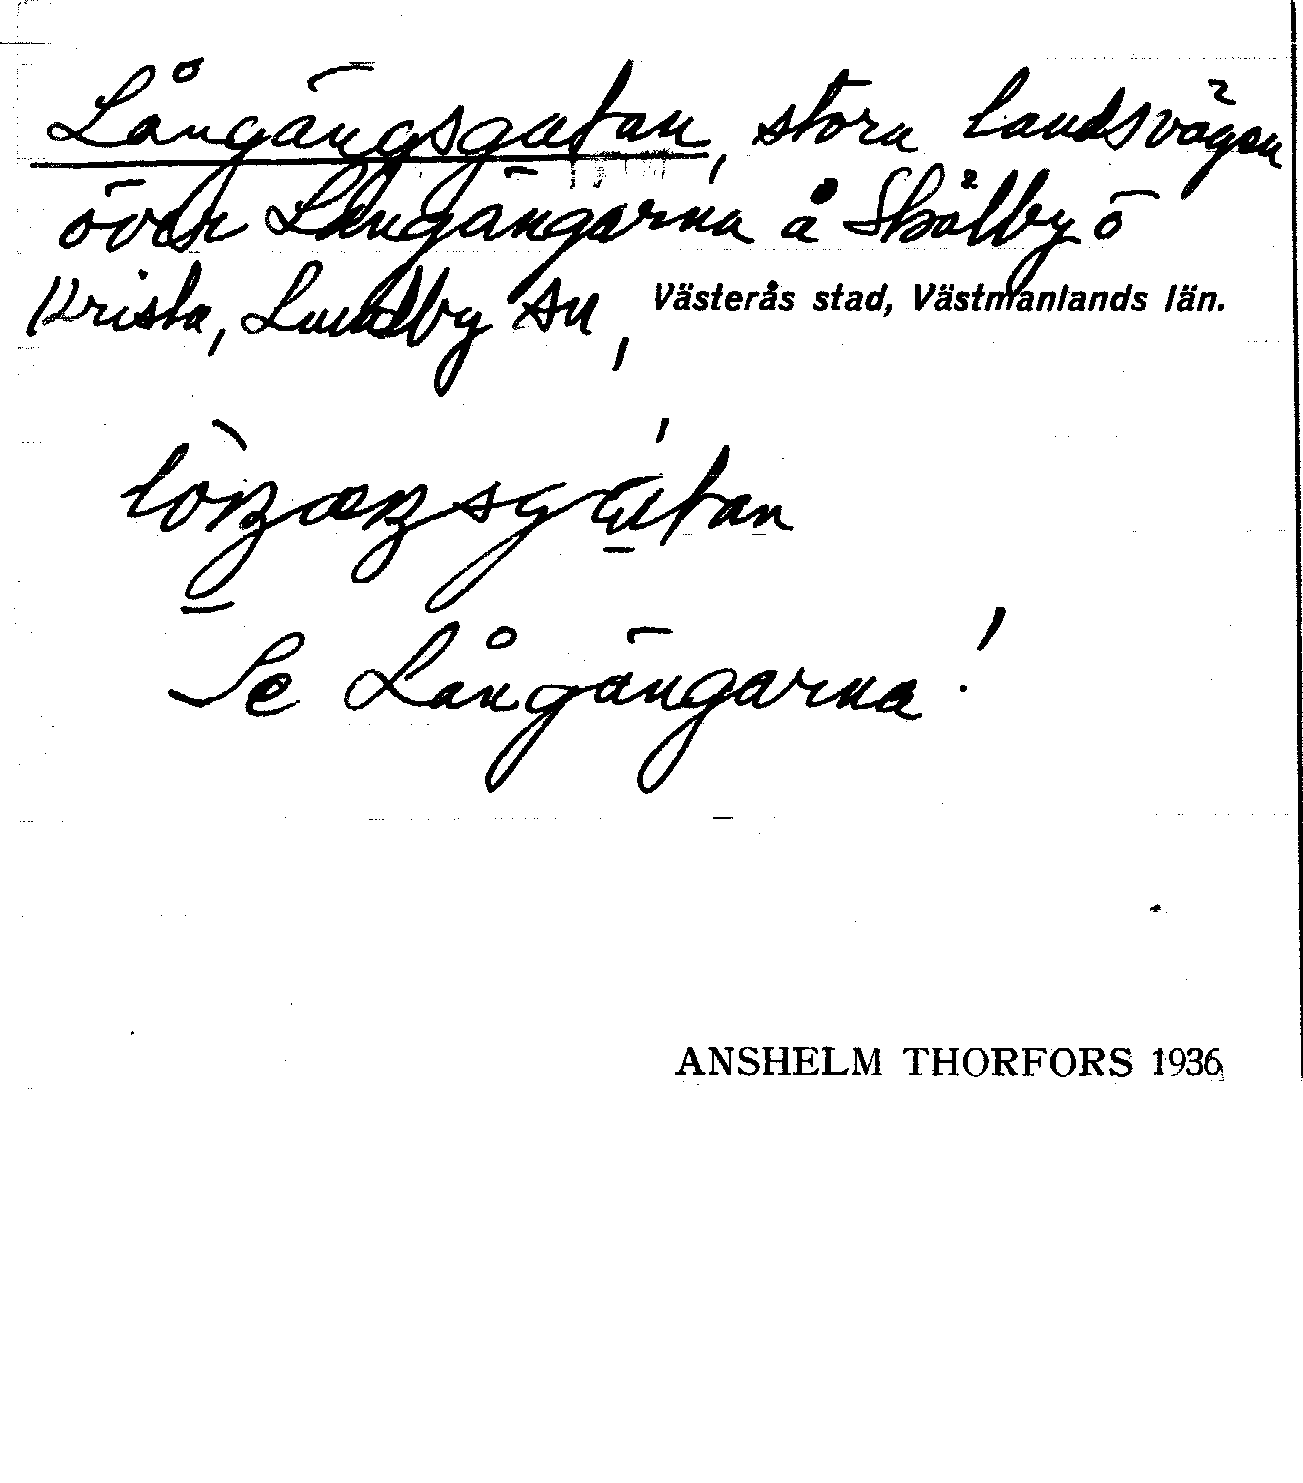 Långängsgatan, stora landsvägen
över Långängarna å Skälby ö
Krista, Lundby sn, Västerås stad, Västmanlands län.
Se Långängarna!
ANSHELM THORFORS 1936